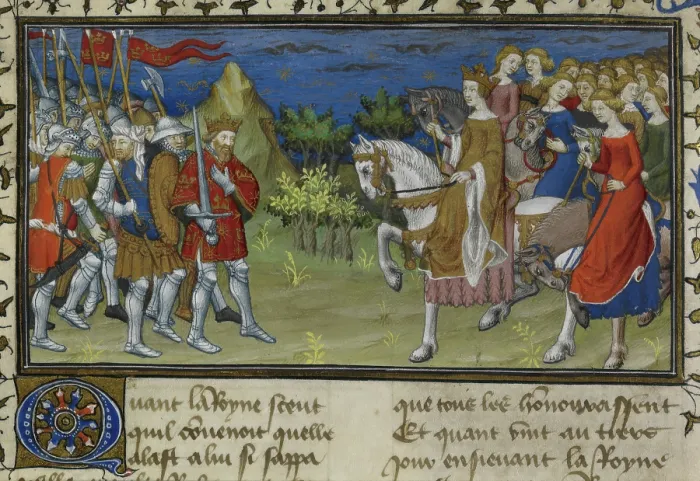 Quant la Royne sceut
quil covenoit quelle
alast a lui si sappa
que tous les honnourassent
Et quant vint au tiers
Jour ensievant la Royne